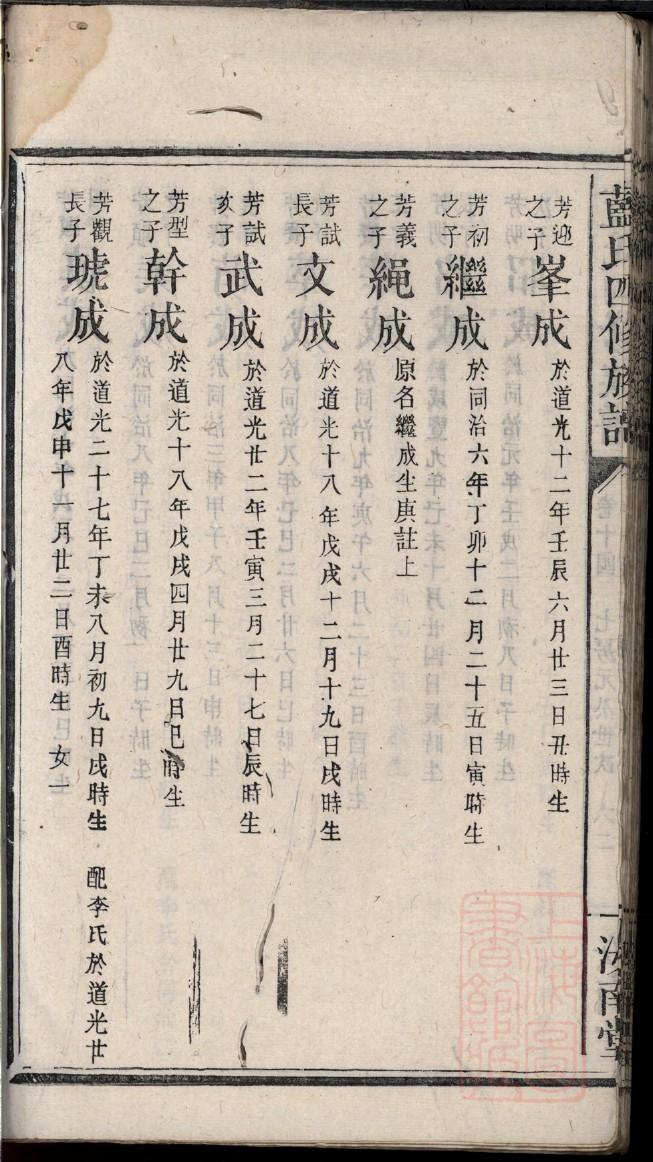 藍氏四修族譜
汝南堂
芳迎之子 峯成 於道光十二年壬辰六月廿三日丑時生
芳初之子 繼成 於同治六年丁卯十二月二十五日寅時生
芳義之子 繩成 原名繼成生庚註上
芳試長子 文成 於道光十八年戊戌十二月十九日戌時生
芳試次子 武成 於道光廿二年壬寅三月二十七日辰時生
芳型之子 幹成 於道光十八年戊戌四月廿九日巳時生
芳觀長子 琥成 於道光二十七年丁未八月初九日戌時生 配李氏於道光廿
八年戊申十一月廿二日酉時生 女一
上海圖書館藏